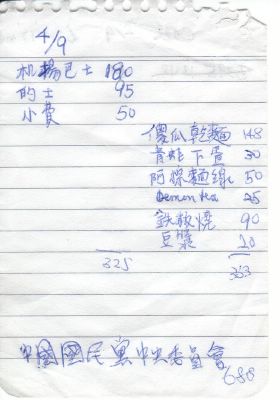 4/9
机場巴士 180
的士 95
小費 50
傻瓜乾麵 148
青蛙下蛋 30
麵線 50
Lemon tea 25
鉄板燒 90
豆漿 20
325
363
中國國民黨中央委員會
688